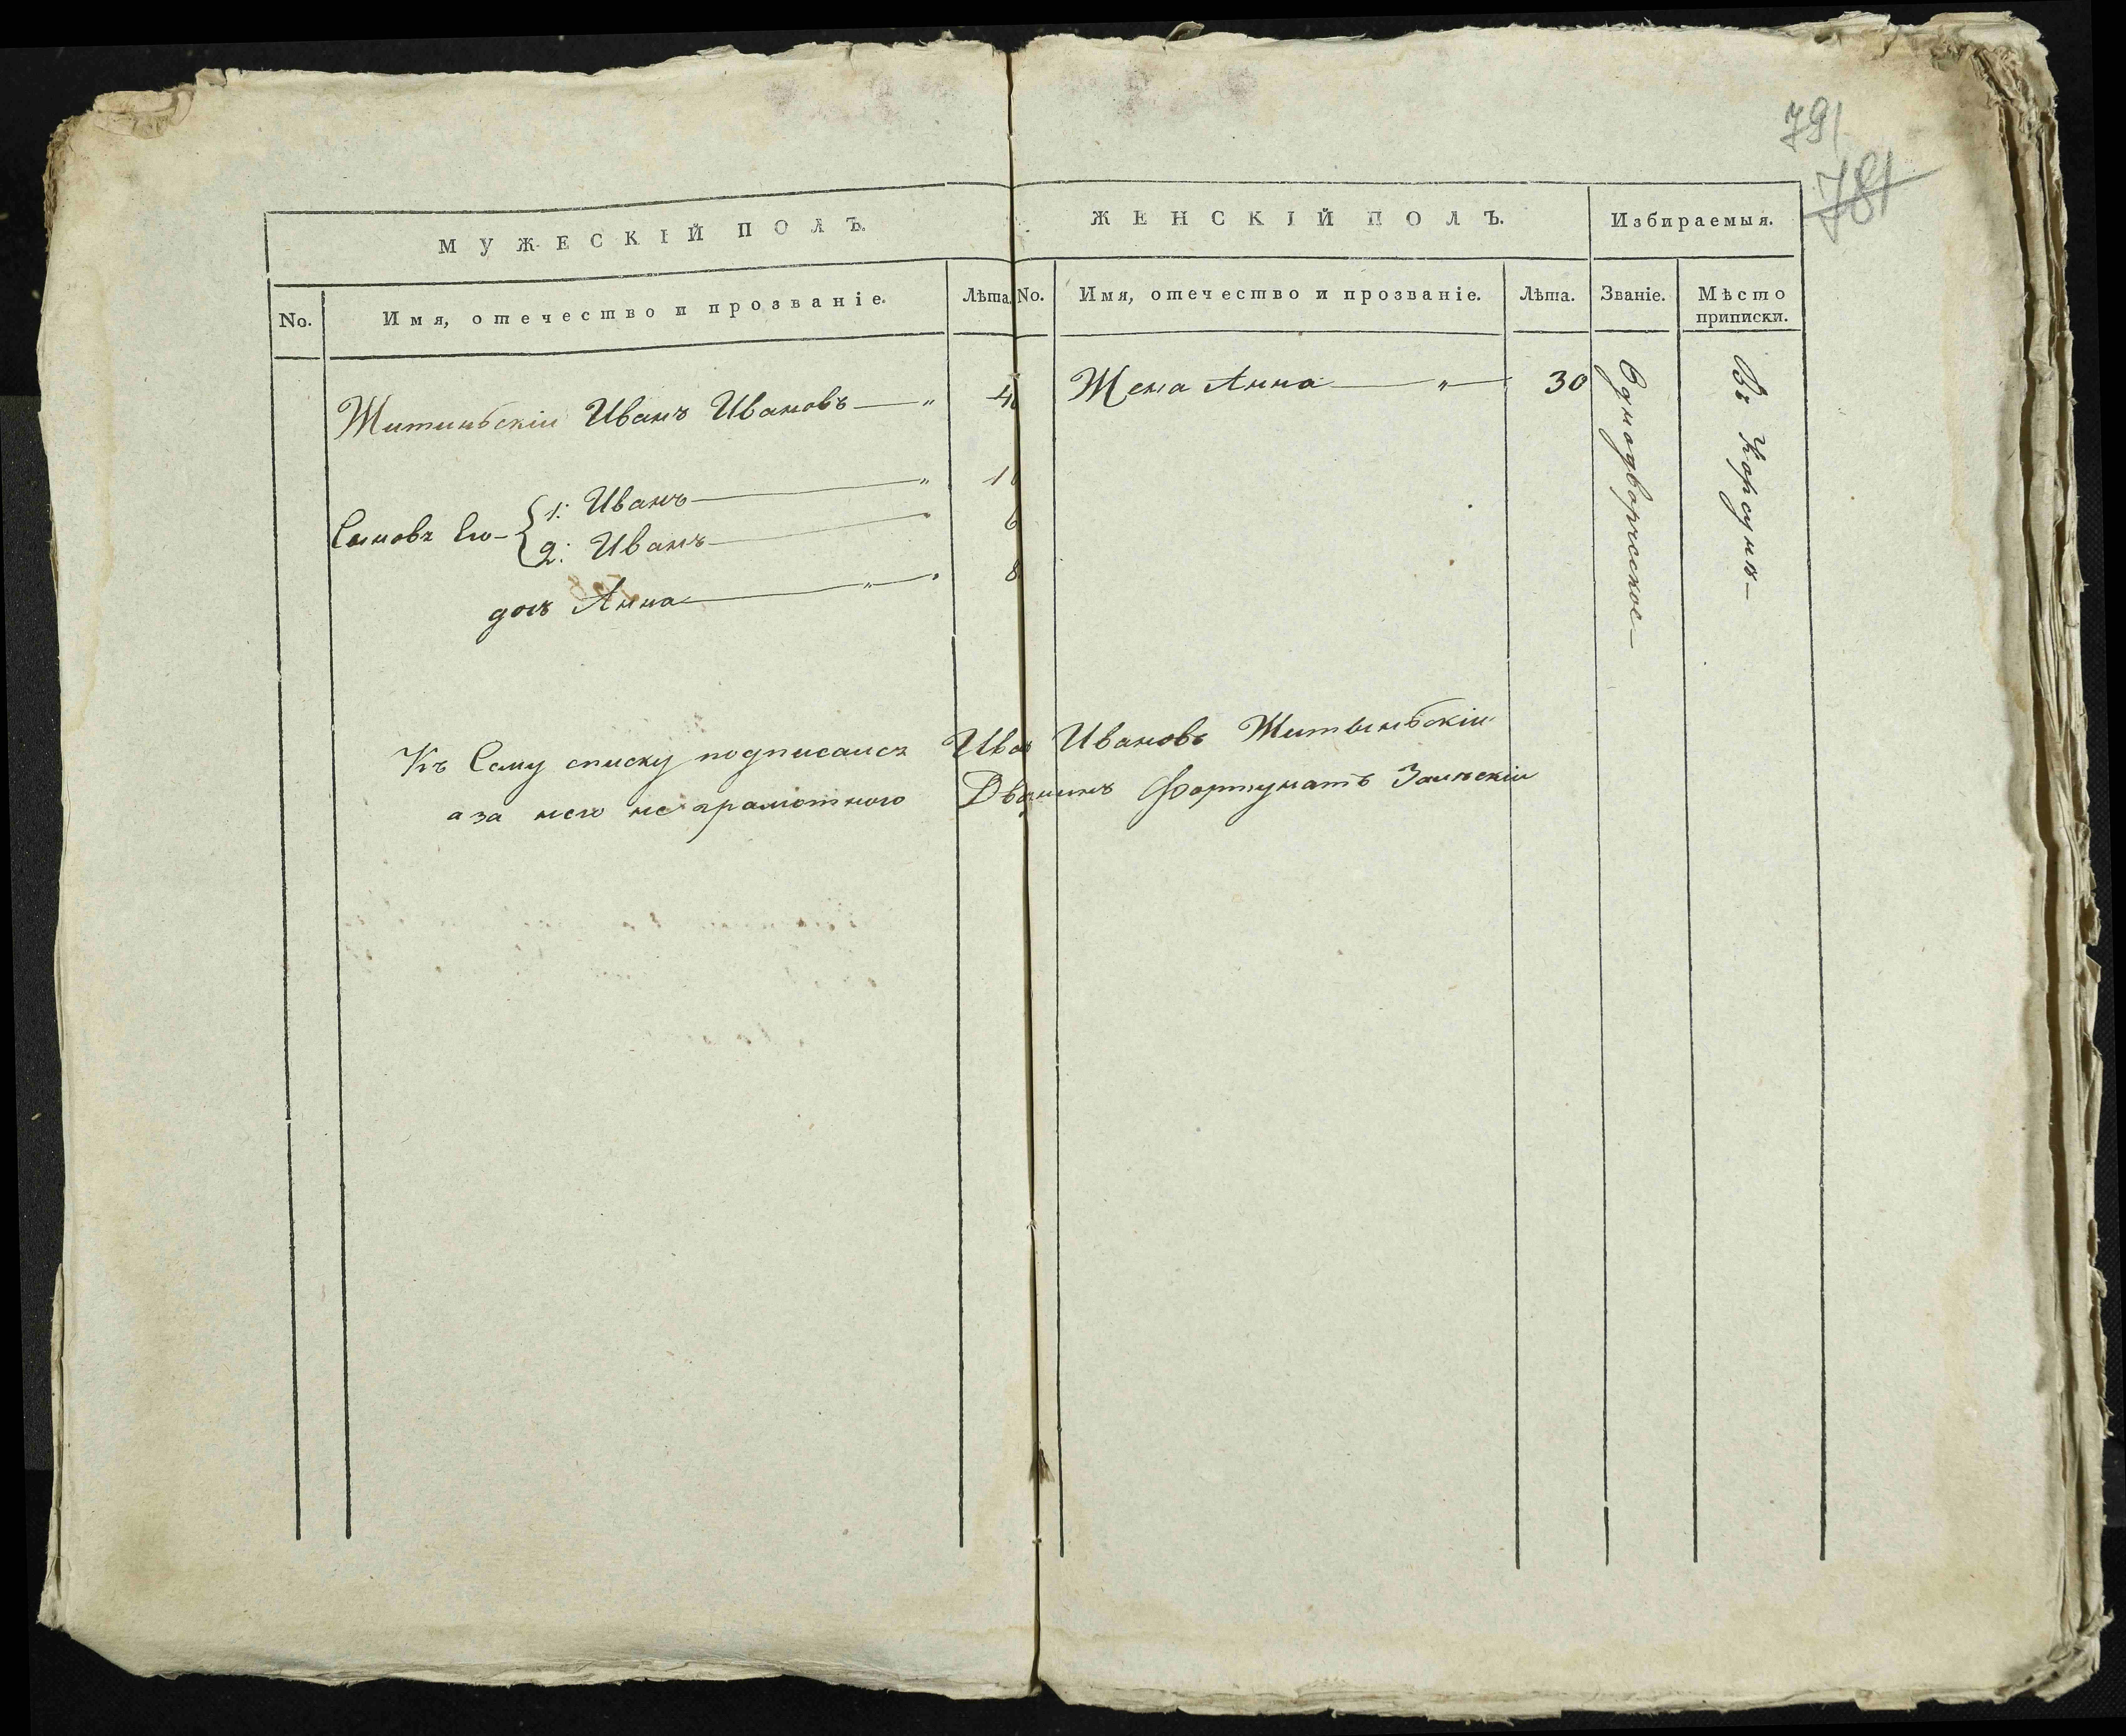 791
781
МУЖЕСКІЙ ПОЛЪ.
ЖЕНСКІЙ ПОЛЪ.
Избираемыя.
No.
Имя, отечество и прозваніе.
Лѣта.
No.
Имя, отечество и прозваніе.
Лѣта.
Званіе.
Мѣсто
приписки.
Житинскій Иванъ Ивановъ — „
Жена Анна — „ — 30
Однодворческое —
Въ Корсунѣ —
Сыновъ Его —
1: Иванъ — „
2: Иванъ — „ 6
дочь Анна — „ — „ 8
Къ Сему списку подписался Иван Ивановъ Житынскій
а за него не грамотного Дворянинъ Фортунатъ Залѣскій